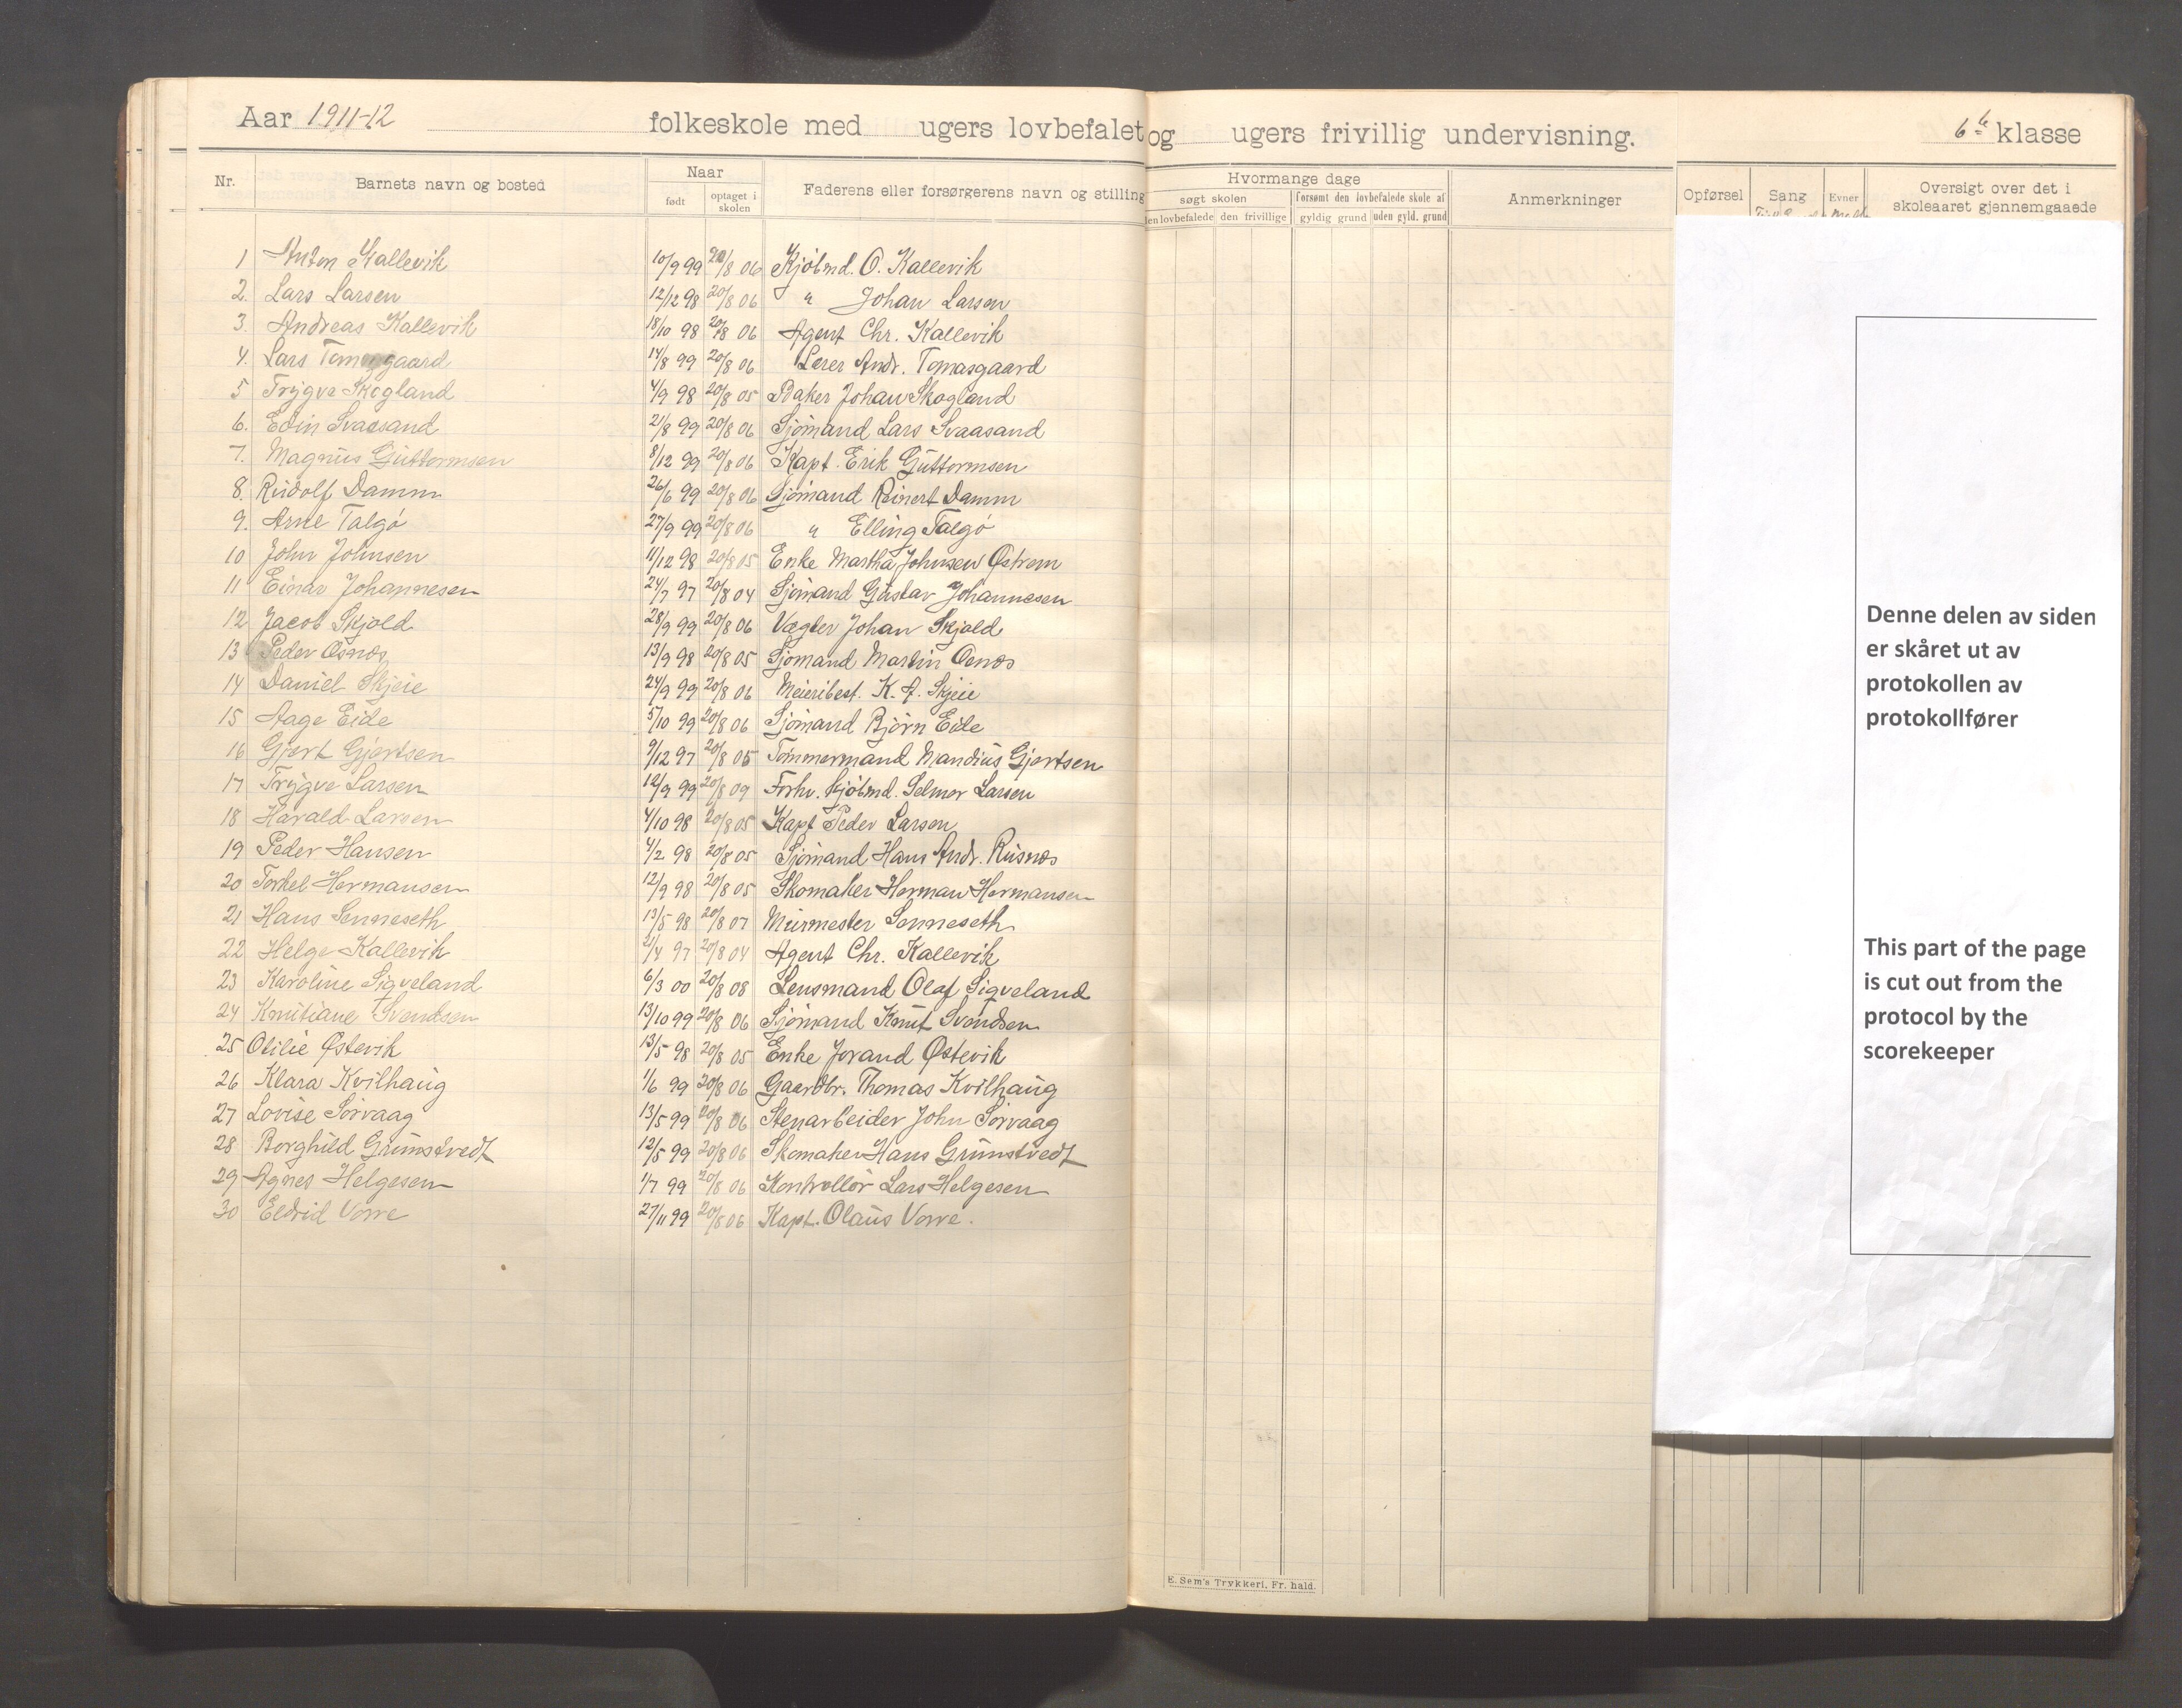 Aar 1911-12 folkeskole med ugers lovbefalet og ugers frivillig undervisning. 6te klasse
Nr. Barnets navn og bosted Naar født optaget i skolen Faderens eller forsørgerens navn og stilling
Hvormange dage
søgt skolen forsømt den lovbefalede skole af
den lovbefalede den frivillige gyldig grund uden gyld. grund
Anmerkninger Opførsel Sang Evner Oversigt over det i skoleaaret gjennemgaaede
1 Anton Kallevik 10/9 99 20/8 06 Kjøbmd. O. Kallevik
2. Lars Larsen 12/12 98 20/8 06 " Johan Larsen
3. Andreas Kallevik 18/10 98 20/8 06 Agent Chr. Kallevik
4. Lars Tomasgaard 14/8 99 20/8 06 Lærer Andr. Tomasgaard
5 Trygve Skogland 4/9 98 20/8 05 Baker Johan Skogland
6. Edin Svaasand 21/8 99 20/8 06 Sjømand Lars Svaasand
7. Magnus Guttormsen 8/12 99 20/8 06 Kapt. Erik Guttormsen
8. Rudolf Damm 26/6 99 20/8 06 Sjømand Reinert Damm
9. Arne Talgø 27/9 99 20/8 06 " Elling Talgø
10 John Johnsen 11/12 98 20/8 05 Enke Martha Johnsen Østrem
11 Einar Johannesen 24/7 97 20/8 04 Sjømand Gustav Johannesen
12 Jacob Skjold 28/9 99 20/8 06 Vægter Johan Skjold
13 Peder Osnes 13/9 98 20/8 05 Sjømand Martin Osnes
14 Daniel Skjeie 24/9 99 20/8 06 Meieribest. K. A. Skjeie
15 Aage Eide 5/10 99 20/8 06 Sjømand Bjørn Eide
16 Gjert Gjertsen 9/12 97 20/8 05 Tømmermand Mandius Gjertsen
17 Trygve Larsen 12/9 99 20/8 09 Forhv. Kjøbmd. Selmer Larsen
18 Harald Larsen 4/10 98 20/8 05 Kapt Peder Larsen
19 Peder Hansen 4/2 98 20/8 05 Sjømand Hans Andr. Rusnes
20 Torkel Hermansen 12/9 98 20/8 05 Skomaker Herman Hermansen
21 Hans Senneseth 13/5 98 20/8 07 Murmester Senneseth
22 Helge Kallevik 21/4 97 20/8 04 Agent Chr. Kallevik
23 Karoline Sigveland 6/3 00 20/8 08 Lensmand Olaf Sigveland
24 Knutiane Svendsen 13/10 99 20/8 06 Sjømand Knut Svendsen
25 Otilie Østevik 13/5 98 20/8 05 Enke Jorand Østevik
26 Klara Kvilhaug 1/6 99 20/8 06 Gaardbr. Thomas Kvilhaug
27 Lovise Sørvaag 13/5 99 20/8 06 Stenarbeider John Sørvaag
28 Borghild Grimstvedt 12/5 99 20/8 06 Skomaker Hans Grimstvedt
29 Agnes Helgesen 1/7 99 20/8 06 Kontrollør Lars Helgesen
30 Eldrid Vorre 27/11 99 20/8 06 Kapt. Olaus Vorre.
Denne delen av siden
er skåret ut av
protokollen av
protokollfører
This part of the page
is cut out from the
protocol by the
scorekeeper
E. Sem's Trykkeri, Fr. hald.